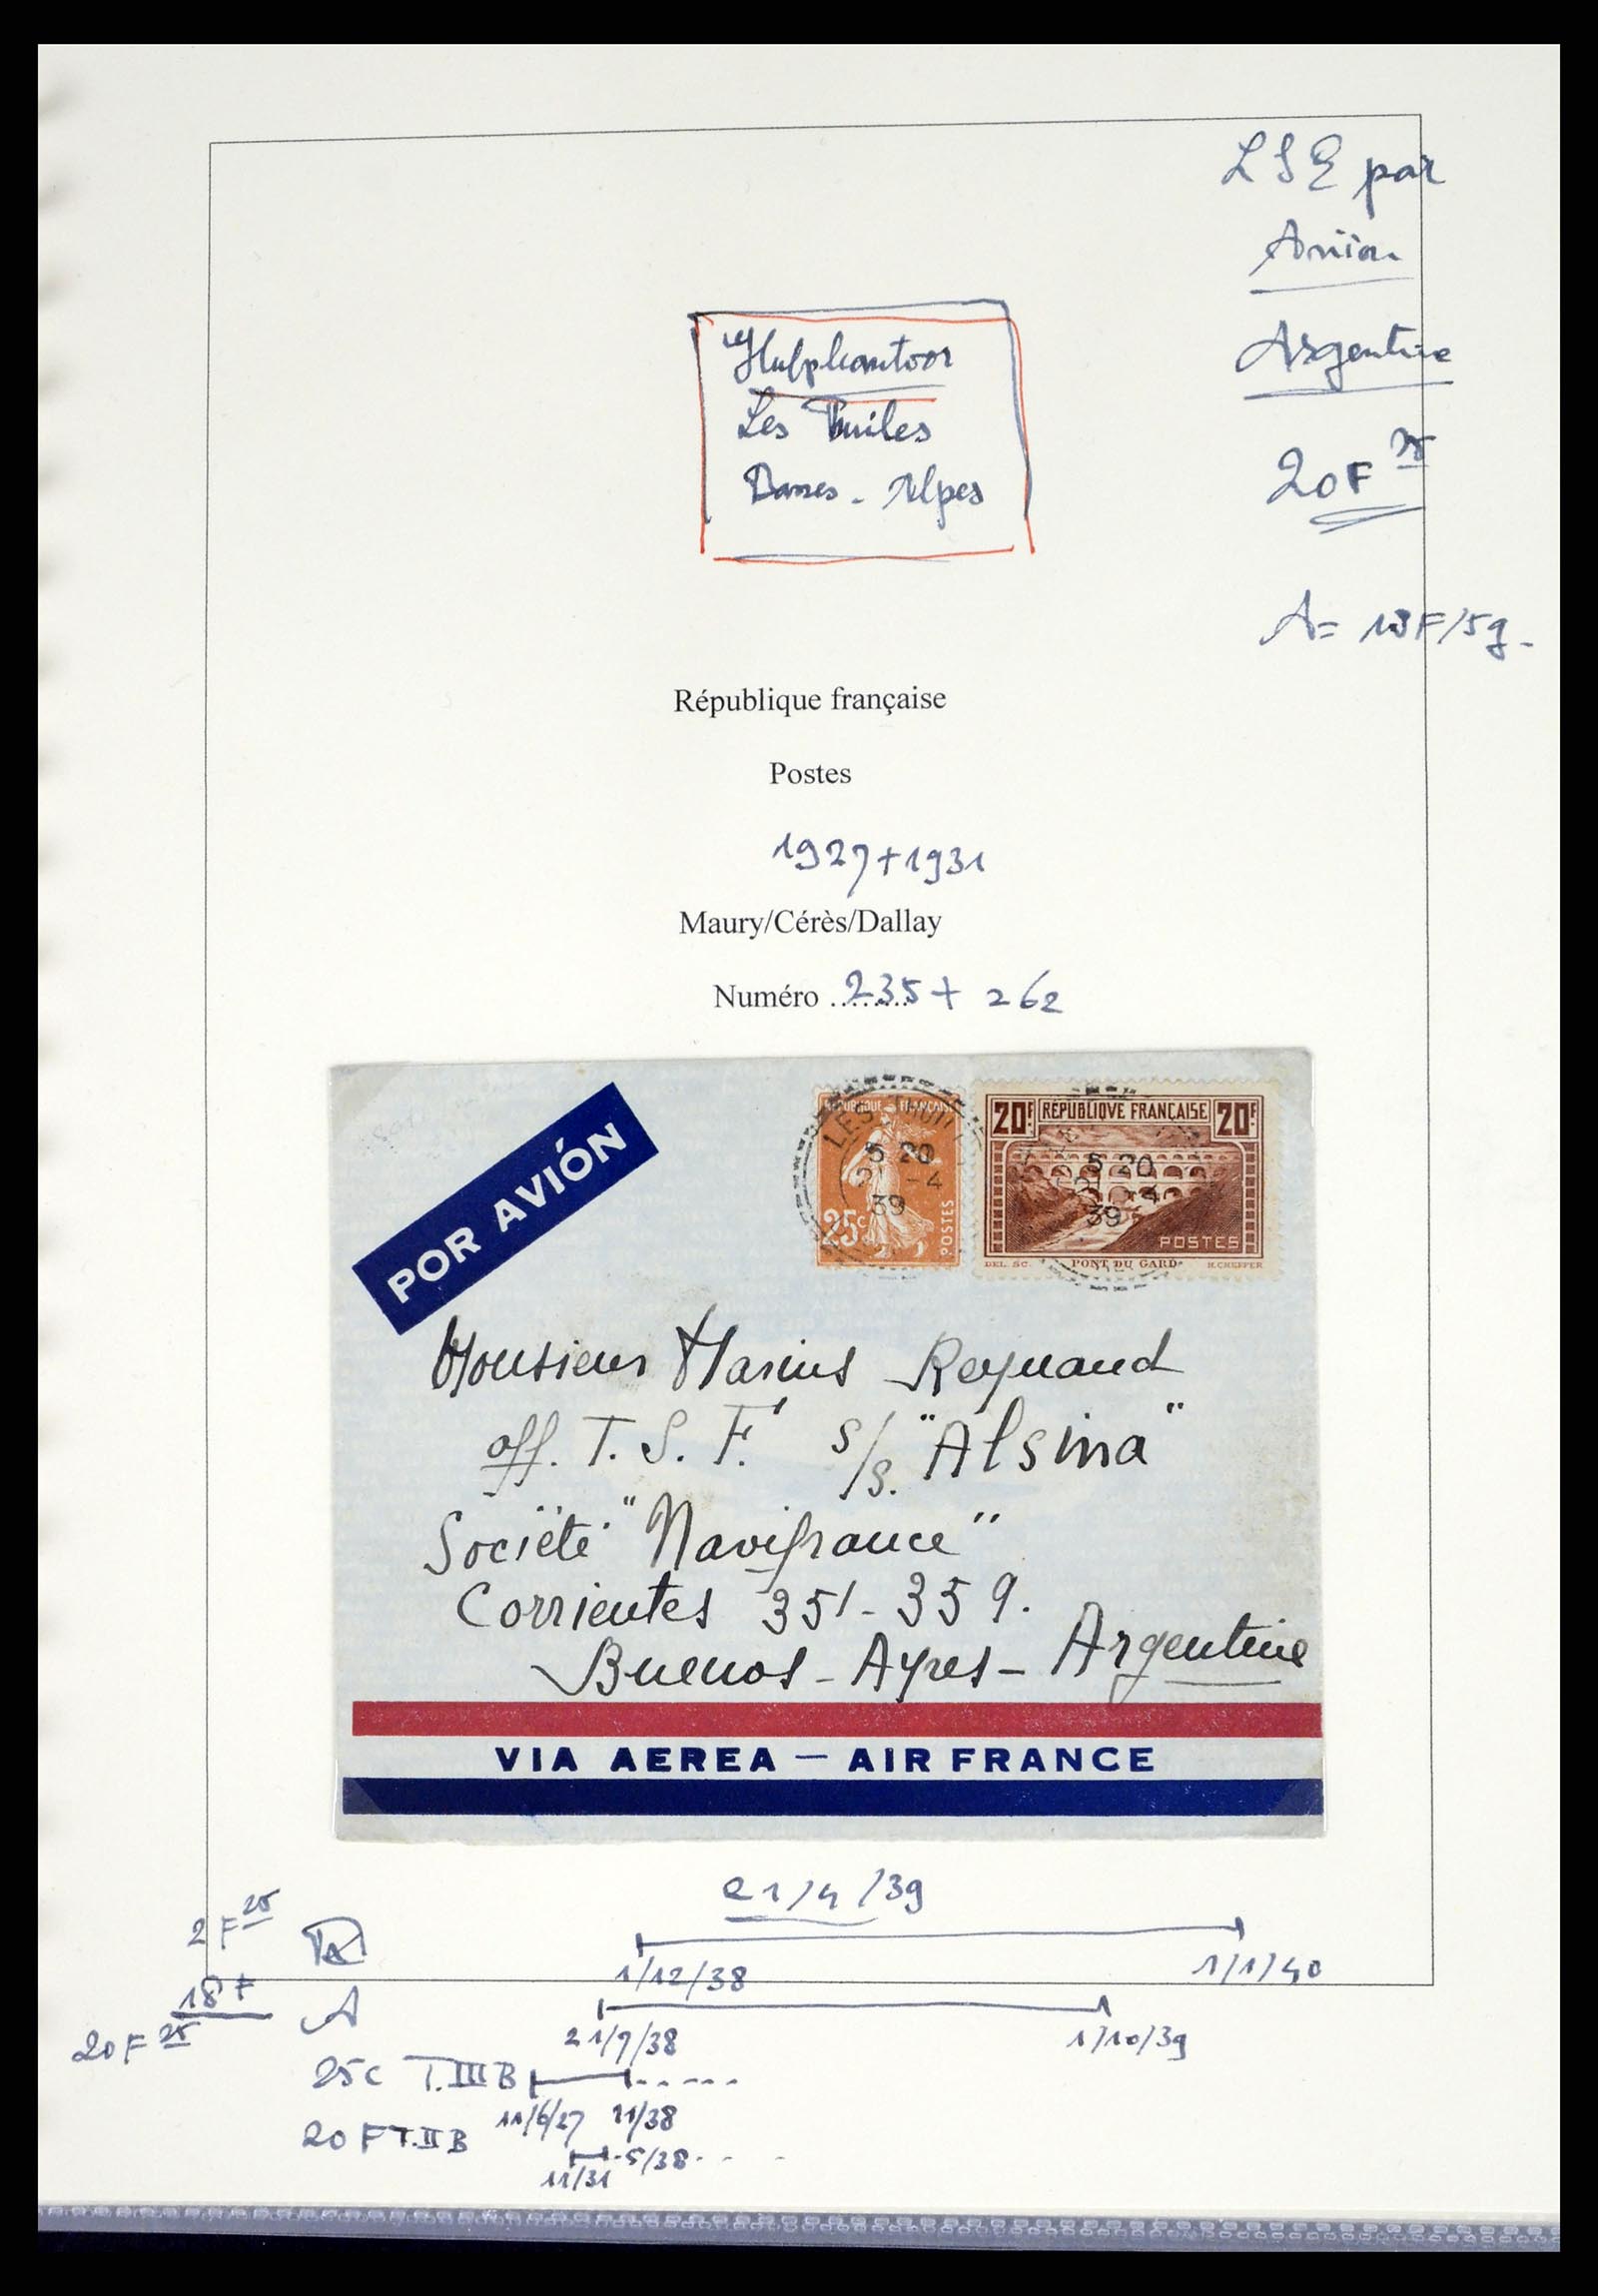 LSE par
Avion
Argentine
20F 25
A= 18F/5g.
Hulpkantoor
Les Thuiles
Basses-Alpes
République française
Postes
1927+1931
Maury/Cérès/Dallay
Numéro ........235+ 262
POR AVIÓN
REPUBLIQUE FRANÇAISE
25c
POSTES
LES THUILES
5 20
21 -4
39
20F RÉPUBLIQVE FRANÇAISE 20F
5 20
21 -4
39
POSTES
DEL. SC. PONT DU GARD H.CHEFFER
Monsieur Marius Reynaud
off. T. S. F. s/s. "Alsina"
Société "Navifrance"
Corrientes 351-359.
Buenos-Ayres- Argentine
VIA AEREA — AIR FRANCE
21/4/39
2F25
1/12/38 1/1/40
18F A
20F25
21/9/38 1/10/39
25c T.IIIB
11/6/27 11/38
20F T.IIB
11/31 5/38